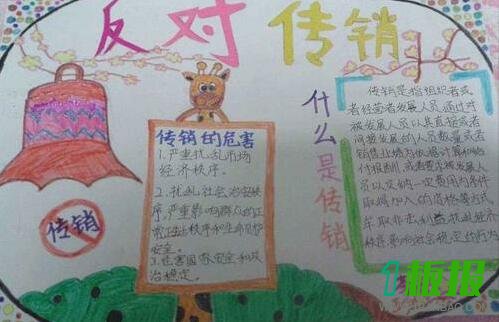 反对传销
传销
传销的危害
1.严重扰乱市场
经济秩序。
2.扰乱社会治安秩
序,严重影响群众的正
常生活秩序和生命财产
安全。
3.危害国家安全和政
治稳定。
什么是传销
传销是指组织者或
者经营者发展人员,通过对
被发展人员以其直接或者
间接发展的人员数量或者
销售业绩为依据计算和给
付报酬,或者要求被发展人
员以交纳一定费用为条件
取得加入的资格等方式
牟取非法利益,扰乱经济
秩序,影响社会稳定的行为
板报